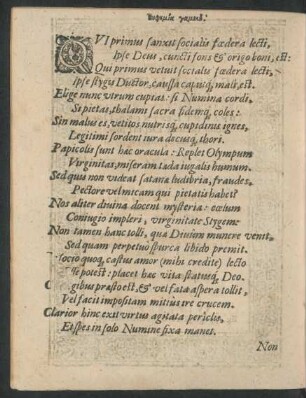 QVI primus sanxit socialis fœdera lecti,
Ipse Deus, cuncti fons & origo boni, est:
Qui primus vetuit socialis fœdera lecti,
Ipse stygis Ductor, caussa caputq́; mali, est.
Elige nunc utrum cupias: si Numina cordi,
Si pietas, thalami sacra fidemq́; coles:
Sin malus es, vetitos nutrisq́; cupidinis ignes,
Legitimi sordent iura decusq́; thori.
Papicolis sunt hæc oracula: Replet Olympum
Virginitas, miseram tæda iugalis humum.
Sed quis non videat satanæ ludibria, fraudes,
Pectore vel micam qui pietatis habet?
Nos aliter divina docent mysteria: cœlum
Coniugio impleri, virginitate Stygem:
Non tamen hanc tolli, quæ Divûm munere venit,
Sed quam perpetuò spurca libido premit.
Socio quoq́; castus amor (mihi credite) lecto
potest: placet hæc vita statusq́; Deo.
gibus præsto est, & vel fata aspera tollit,
Vel facit impositam mitius ire crucem.
Clarior hinc exit virtus agitata periclis,
Et spes in solo Numine fixa manet.
Non